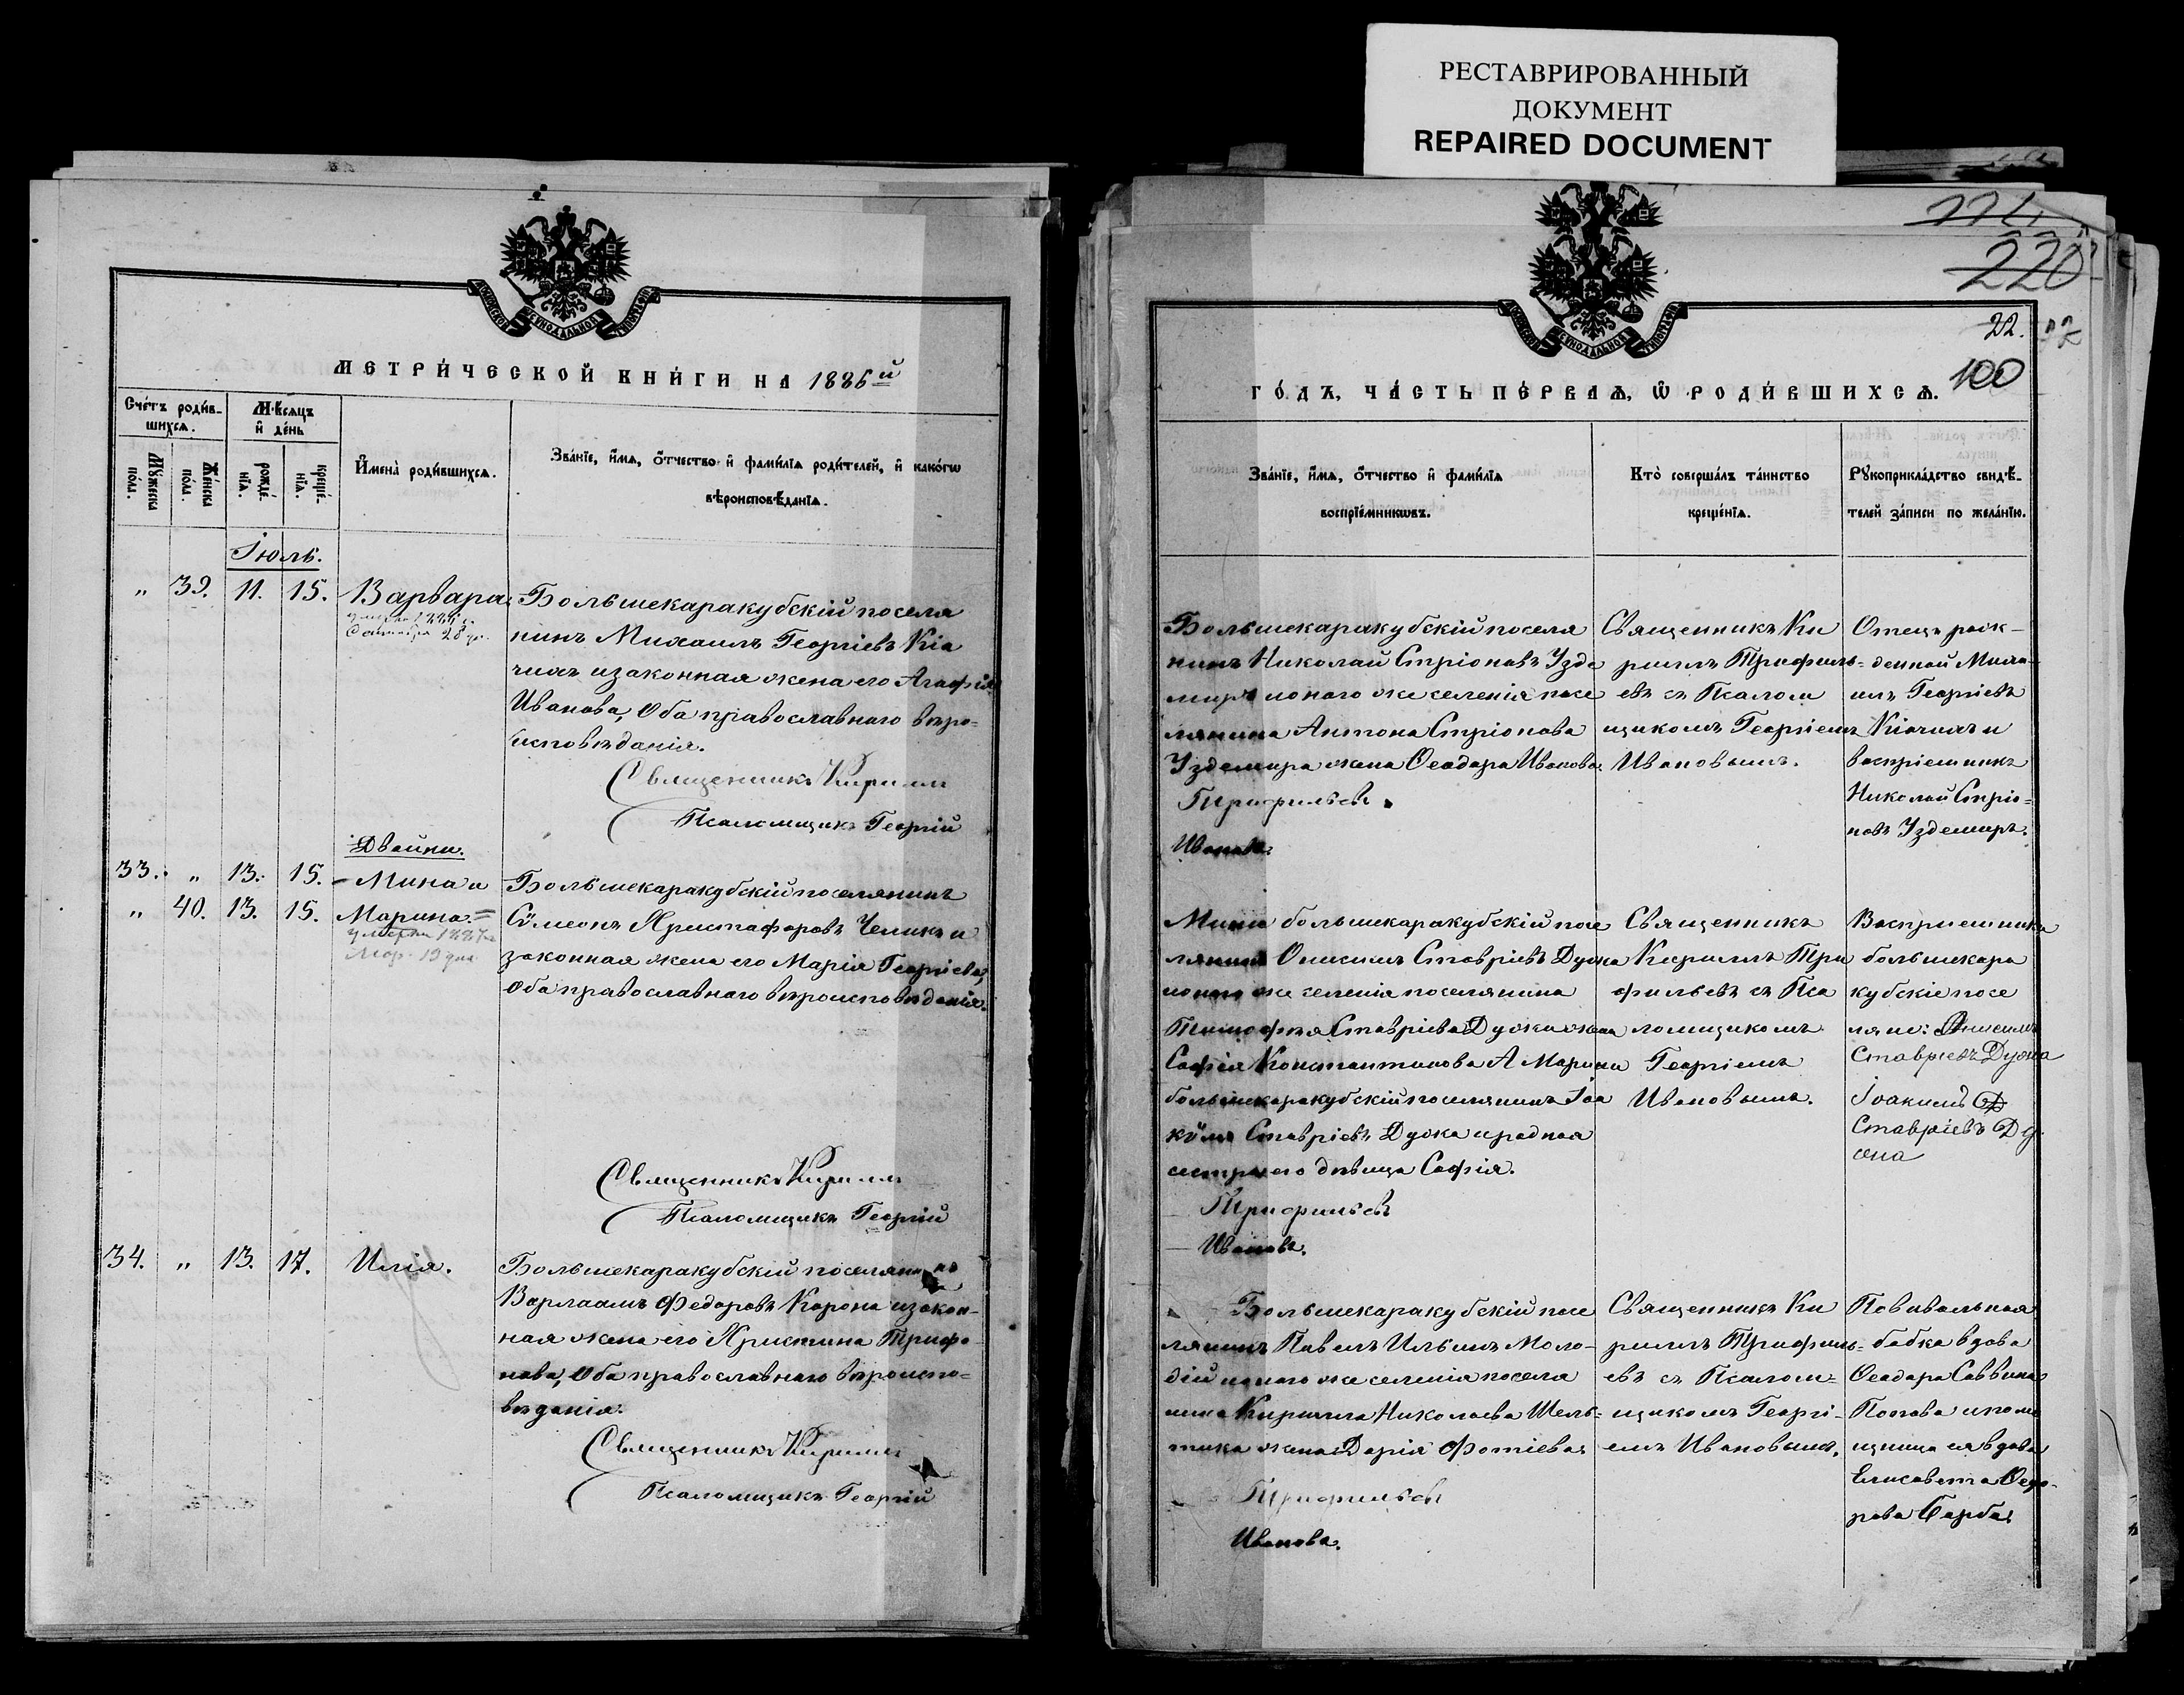 РЕСТАВРИРОВАННЫЙ
ДОКУМЕНТ
REPAIRED DOCUMENT
МЕТРИ́ЧЕСКОЙ КНИ́ГИ НА 1886й
Сче́тъ роди́в-
шихсѧ.
Мѣ́сѧцъ
и҆ де́нь
Мꙋ́жеска
по́лꙋ.
Же́нска
по́лꙋ.
рожде́-
нїѧ.
креще́-
нїѧ.
И҆мена̀ роди́вшихсѧ.
Зва́нїе, и҆́мѧ, ѻ҆́тчество и҆ фами́лїѧ роди́телей, и҆ како́гѡ
вѣроисповѣ́данїѧ.
Іюль.
„ 39. 11. 15. Варвара
Сентября 28 дн.
Большекаракубскій поселя
нинъ Михаилъ Георгіевъ Кіа
чихъ и законная жена его Агафія
Иванова, Оба православнаго вѣро=
исповѣданія.
Священникъ Кириллъ
Псаломщикъ Георгій
Двойни.
33. „ 13. 15. Мина и
„ 40. 13. 15. Марина.
умерла 1887 г.
Мар. 19 дня
Большекаракубскій поселянинъ
Сѵмеонъ Христофоровъ Челикъ и
законная жена его Марія Георгіева,
Оба православнаго вѣроисповѣданія.
Священникъ Кириллъ
Псаломщикъ Георгій
34. „ 13. 17. Илія.
Большекаракубскій поселянинъ
Варлаамъ Федоровъ Корона и закон-
ная жена его Христина Трифо
нова, Оба православнаго вѣроиспо=
вѣданія.
Священникъ Кириллъ
Псаломщикъ Георгій
220
22.
100
ГО́ДЪ, ЧА́СТЬ ПЕ́РВАѦ, Ѡ҆ РОДИ́ВШИХСѦ.
Зва́нїе, и҆́мѧ, ѻ҆́тчество и҆ фами́лїѧ
воспрїе́мникѡвъ.
Кто̀ соверша́лъ та́инство
креще́нїѧ.
Рꙋкоприкла́дство свидѣ́-
телей за́писи по жела́нїю.
Большекаракубскій поселя
нинъ Николай Стріоновъ Узде
миръ и онаго же селенія посе
лянина Антона Стріонова
Уздемира жена Ѳеодора Иванова.
Трифильевъ
Ивановъ.
Священникъ Ки
риллъ Трифиль=
евъ съ Псалом
щикомъ Георгіемъ
Ивановымъ.
Отецъ рож-
денной Миха-
илъ Георгіевъ
Кіачихъ и
воспріемникъ
Николай Стріо=
новъ Уздемиръ.
Мины большекаракубскій посе
лянинъ Онисимъ Ставріевъ Дужа
и онаго же селенія поселянина
Тимофея Ставріева Дужи жена
Софія Константинова А Марины
большекаракубскій поселянинъ Іоа
кѵмъ Ставріевъ Дужа и родная
сестра его дѣвица Софія.
Трифильевъ
Ивановъ.
Священникъ
Кириллъ Три
фильевъ съ Пса
ломщикомъ
Георгіемъ
Ивановымъ.
Воспріемники
большекара
кубскіе посе
ляне: Онисимъ
Ставріевъ Дужа
Іоакимъ
Ставріевъ Ду
жа
Большекаракубскій посе
лянинъ Павелъ Ильинъ Моло-
дій и онаго же селенія поселя
нина Кирилла Николаева Шель-
тика жена Дарія Фотіева.
Трифильевъ
Ивановъ.
Священникъ Ки
риллъ Трифиль=
евъ съ Псалом=
щикомъ Георгі-
емъ Ивановымъ.
Повивальная
бабка вдова
Ѳеодора Саввина
Попова и помо
щница ея вдова
Елисавета Ѳедо-
рова Барба.